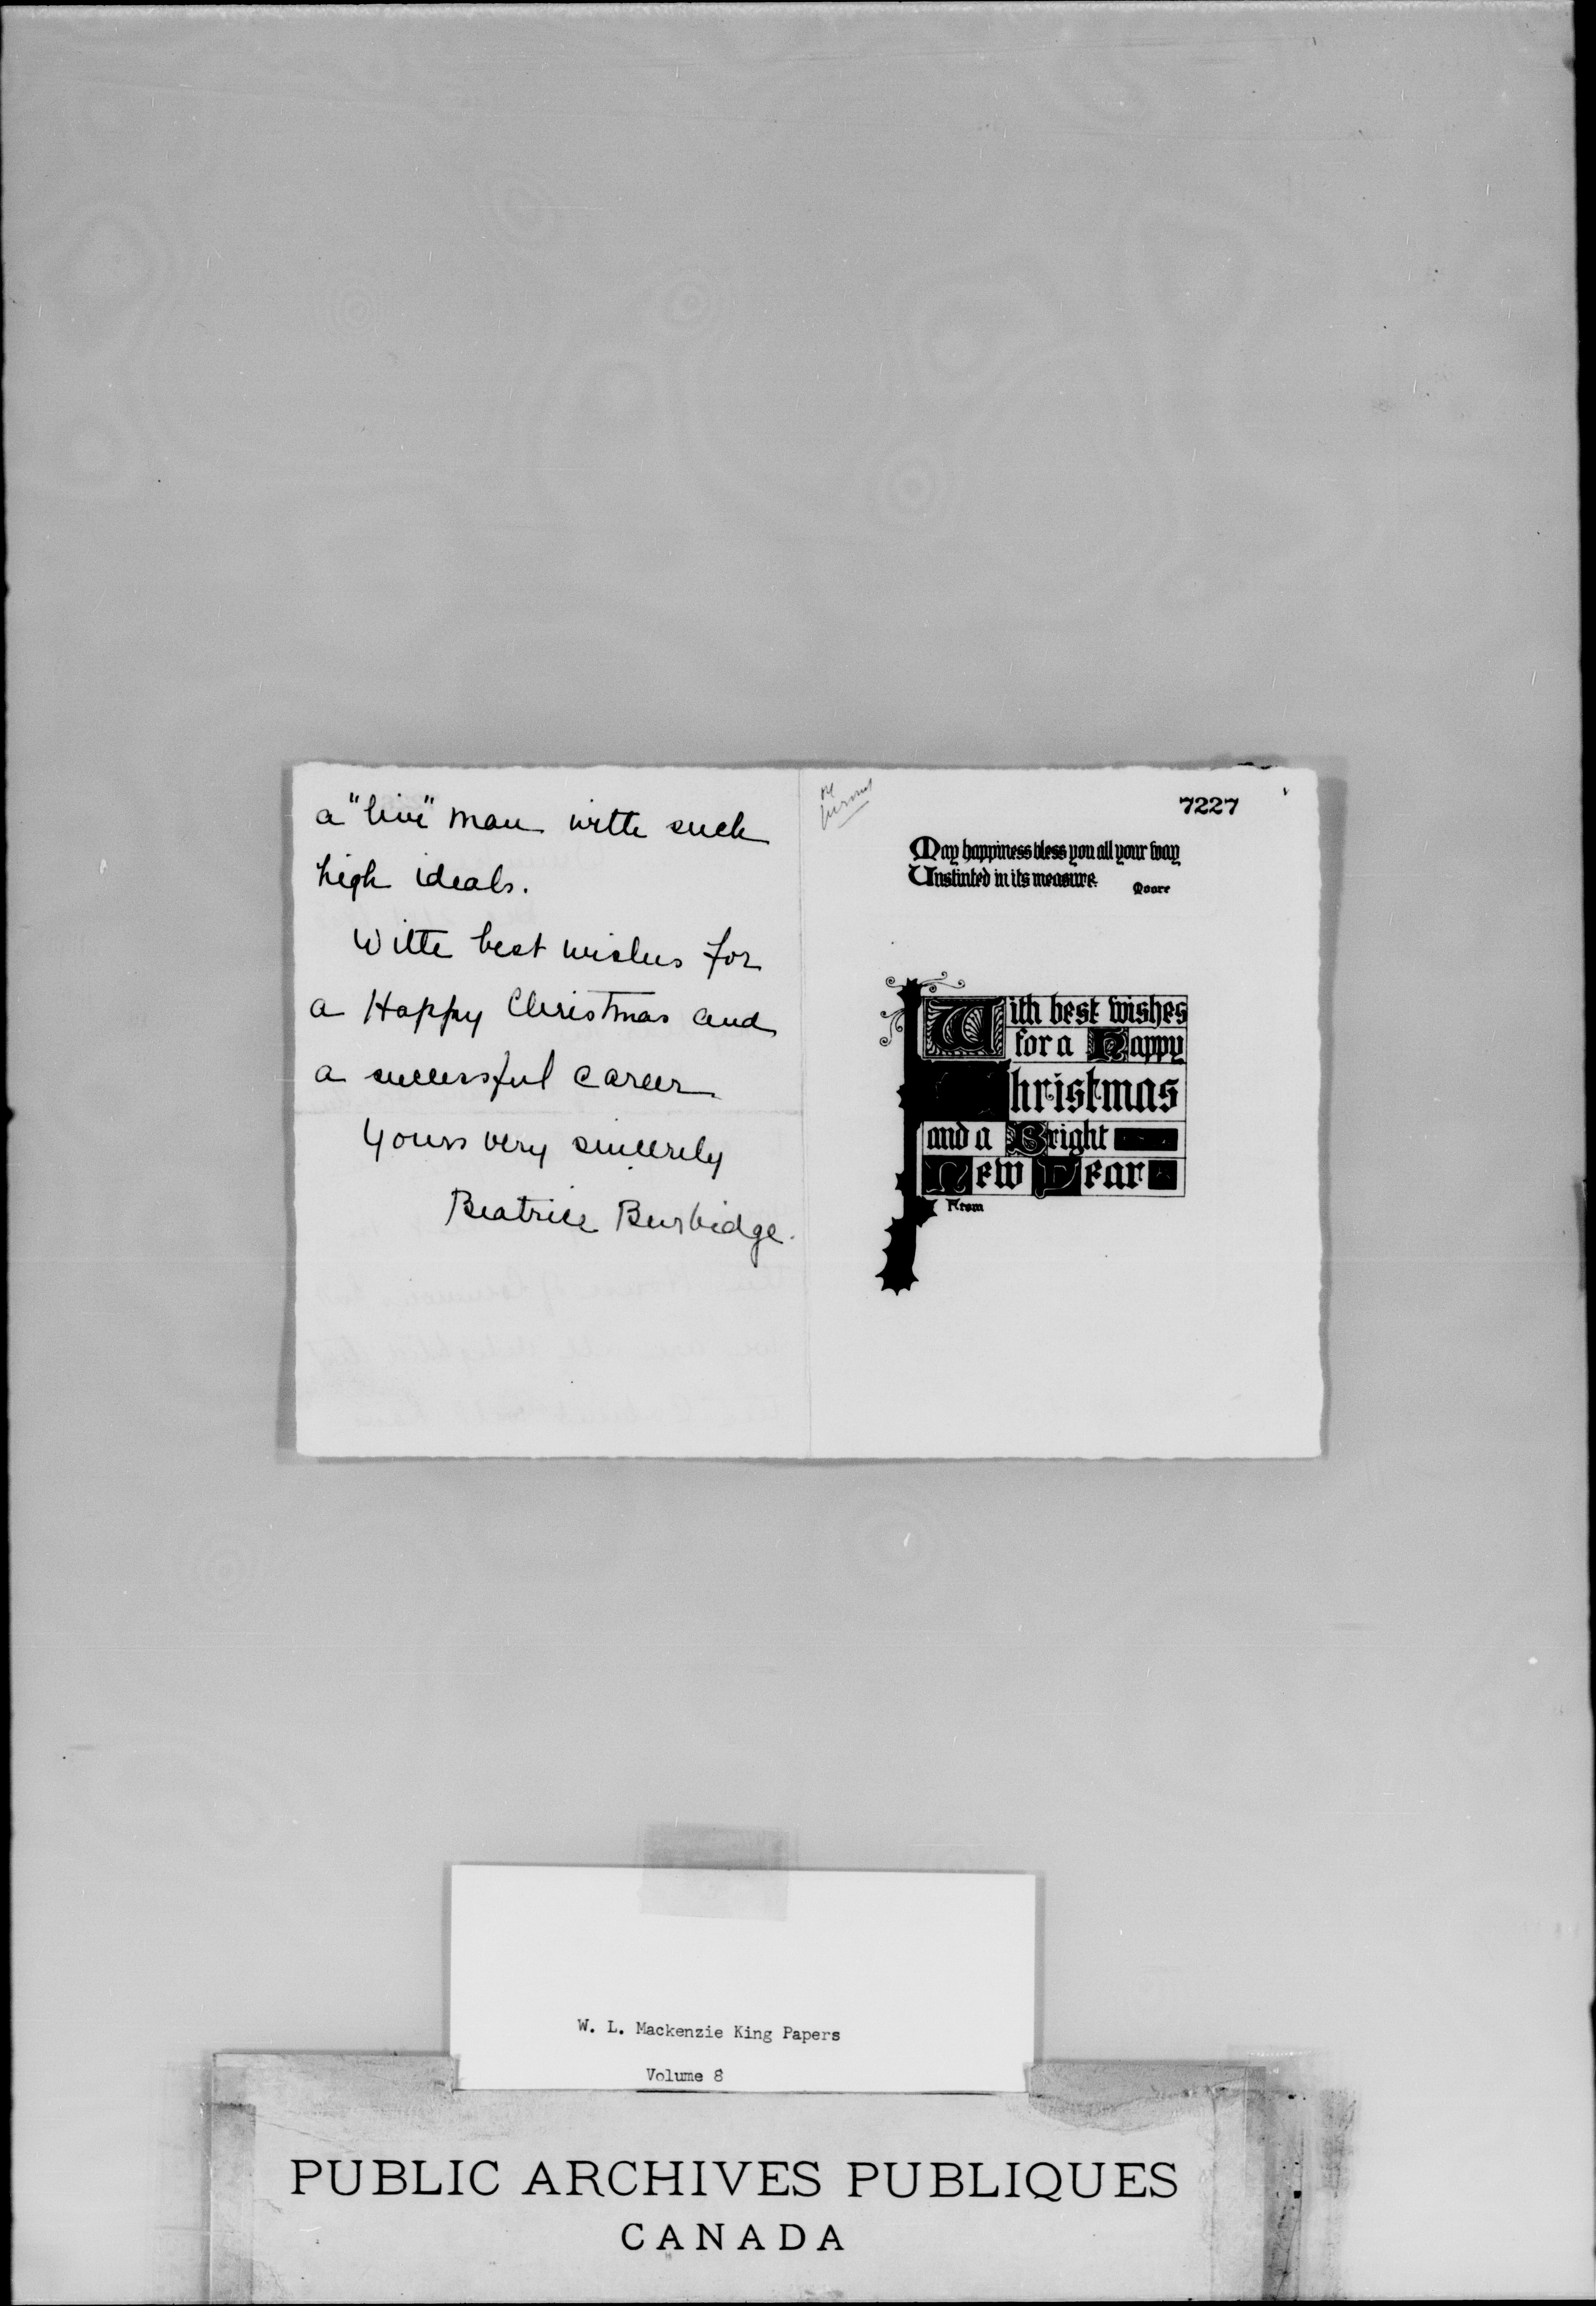 a "live" man with such
high ideals.
With best wishes for
a Happy Christmas and
a successful career
Yours very sincerely
Beatrice Burbidge.
7227
May happiness bless you all your way
Unstinted in its measure.
Moore
With best wishes
for a Happy
Christmas
and a Bright
New Year
From
W. L. Mackenzie King Papers
Volume 8
PUBLIC ARCHIVES PUBLIQUES
CANADA